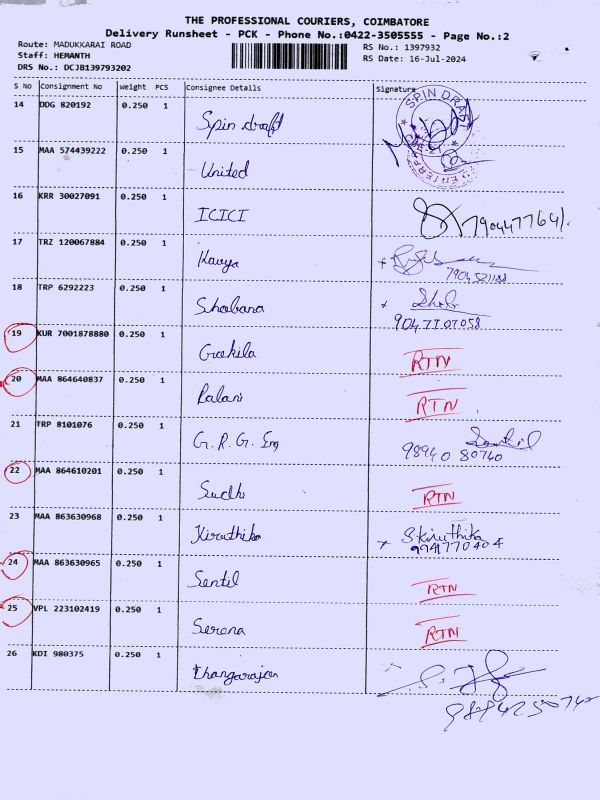 THE PROFESSIONAL COURIERS, COIMBATORE
Delivery Runsheet - PCK - Phone No.:0422-3505555 - Page No.:2
Route: MADUKKARAI ROAD
Staff: HEMANTH
DRS No.: DCJB139793202
RS No.: 1397932
RS Date: 16-Jul-2024
S No Consignment No Weight PCS Consignee Details Signature
14 DDG 820192 0.250 1 Spin draft SPIN DRAFT
15 MAA 574439222 0.250 1 United
16 KRR 30027091 0.250 1 ICICI
17 TRZ 120067884 0.250 1 Kavya
18 TRP 6292223 0.250 1 Shabana
19 KUR 7001878880 0.250 1 Gokila RTN
20 MAA 864640837 0.250 1 Palani RTN
21 TRP 8101076 0.250 1 G.R.G. Eng 98940 80740
22 MAA 864610201 0.250 1 Sudh RTN
23 MAA 863630968 0.250 1 Kiruthika S.Kiruthika
9941770404
24 MAA 863630965 0.250 1 Sentil RTN
25 VPL 223102419 0.250 1 Serena RTN
26 KDI 980375 0.250 1 Thangarajan